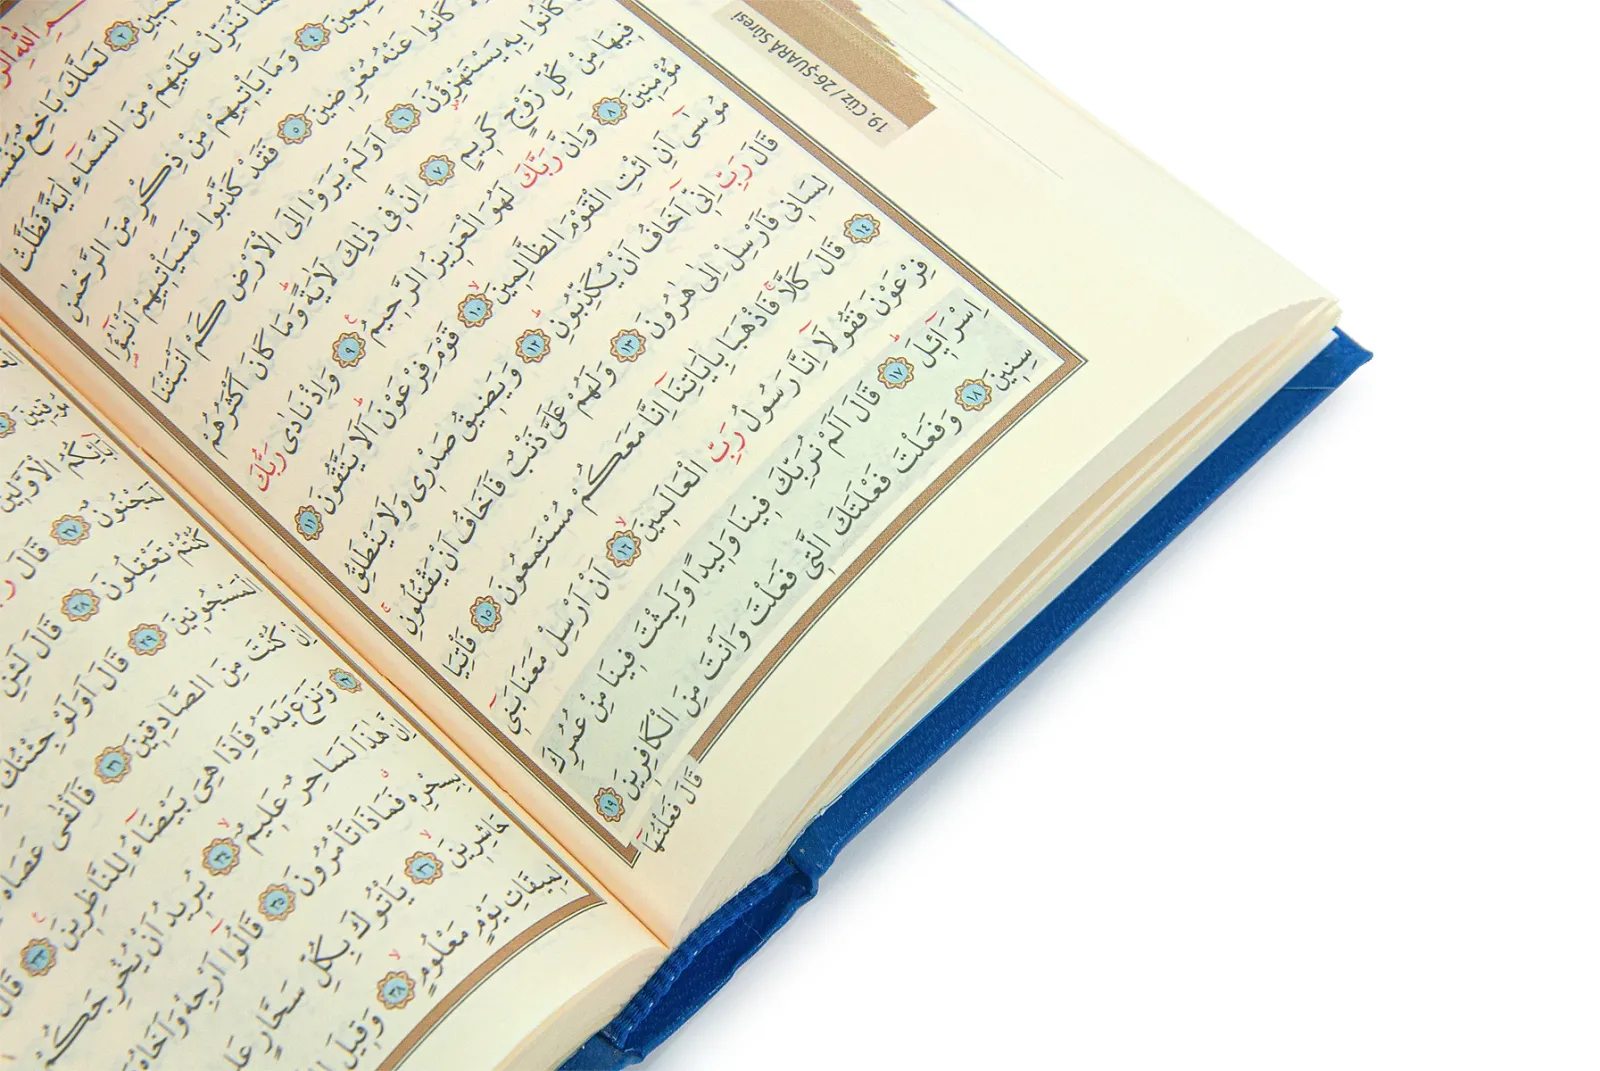 19. Cüz / 26-ŞUARÂ Sûresi
اللّٰهِ
٢ لَعَلَّكَ بَاخِعٌ
نُنَزِّلْ عَلَيْهِمْ مِنَ السَّمَٓاءِ اٰيَةً فَظَلَّتْ
٤ وَمَا يَأْتِيهِمْ مِنْ ذِكْرٍ مِنَ الرَّحْمٰنِ
كَانُوا عَنْهُ مُعْرِضِينَ ٥ فَقَدْ كَذَّبُوا فَسَيَأْتِيهِمْ اَنْبٰٓؤُا
كَانُوا بِهِ يَسْتَهْزِؤُنَ ٦ اَوَلَمْ يَرَوْا اِلَى الْاَرْضِ كَمْ اَنْبَتْنَا
فِيهَا مِنْ كُلِّ زَوْجٍ كَرِيمٍ ٧ اِنَّ فِي ذٰلِكَ لَاٰيَةً وَمَا كَانَ اَكْثَرُهُمْ
مُؤْمِنِينَ ٨ وَاِنَّ رَبَّكَ لَهُوَ الْعَزِيزُ الرَّحِيمُ ٩ وَاِذْ نَادٰى رَبُّكَ
مُوسٰٓى اَنِ ائْتِ الْقَوْمَ الظَّالِمِينَ ١٠ قَوْمَ فِرْعَوْنَ اَلَا يَتَّقُونَ ١١
قَالَ رَبِّ اِنِّٓي اَخَافُ اَنْ يُكَذِّبُونِ ١٢ وَيَضِيقُ صَدْرِي وَلَا يَنْطَلِقُ
لِسَانِي فَاَرْسِلْ اِلٰى هٰرُونَ ١٣ وَلَهُمْ عَلَيَّ ذَنْبٌ فَاَخَافُ اَنْ يَقْتُلُونِ
١٤ قَالَ كَلَّا فَاذْهَبَا بِاٰيَاتِنَٓا اِنَّا مَعَكُمْ مُسْتَمِعُونَ ١٥ فَأْتِيَا
فِرْعَوْنَ فَقُولَٓا اِنَّا رَسُولُ رَبِّ الْعَالَمِينَ ١٦ اَنْ اَرْسِلْ مَعَنَا بَنِٓي
اِسْرَٓائِلَ ١٧ قَالَ اَلَمْ نُرَبِّكَ فِينَا وَلِيدًا وَلَبِثْتَ فِينَا مِنْ عُمُرِكَ
سِنِينَ ١٨ وَفَعَلْتَ فَعْلَتَكَ الَّتِي فَعَلْتَ وَاَنْتَ مِنَ الْكَافِرِينَ ١٩
قَالَ فَعَلْتُهَٓا
مُوقِنِينَ
اٰبَٓائِكُمُ الْاَوَّلِينَ
لَمَجْنُونٌ ٢٧ قَالَ
كُنْتُمْ تَعْقِلُونَ ٢٨ قَالَ لَئِنِ
الْمَسْجُونِينَ ٢٩ قَالَ اَوَلَوْ جِئْتُكَ
اِنْ كُنْتَ مِنَ الصَّادِقِينَ ٣١ فَاَلْقٰى عَصَاهُ
وَنَزَعَ يَدَهُ فَاِذَا هِيَ بَيْضَٓاءُ لِلنَّاظِرِينَ ٣٣ قَالَ
اِنَّ هٰذَا لَسَاحِرٌ عَلِيمٌ ٣٤ يُرِيدُ اَنْ يُخْرِجَكُمْ
بِسِحْرِهِ فَمَاذَا تَأْمُرُونَ ٣٥ قَالُٓوا اَرْجِهْ وَاَخَاهُ
حَاشِرِينَ ٣٦ يَأْتُوكَ بِكُلِّ سَحَّارٍ
لِمِيقَاتِ يَوْمٍ مَعْلُومٍ ٣٨ وَقِيلَ